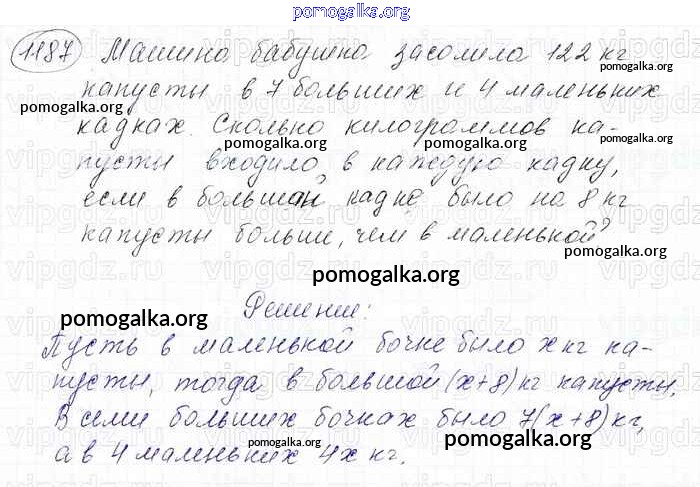 pomogalka.org
1187 Машина бабушка засолила 122 кг
капусты в 7 больших и 4 маленьких
кадках. Сколько килограммов ка-
пусты входило в каждую кадку,
если в большой кадке было на 8 кг
капусты больше, чем в маленькой?
pomogalka.org
Решение:
pomogalka.org
Пусть в маленькой бочке было х кг ка-
пусты, тогда в большой (х+8) кг капусты.
В семи больших бочках было 7(х+8) кг,
а в 4 маленьких 4х кг.
pomogalka.org